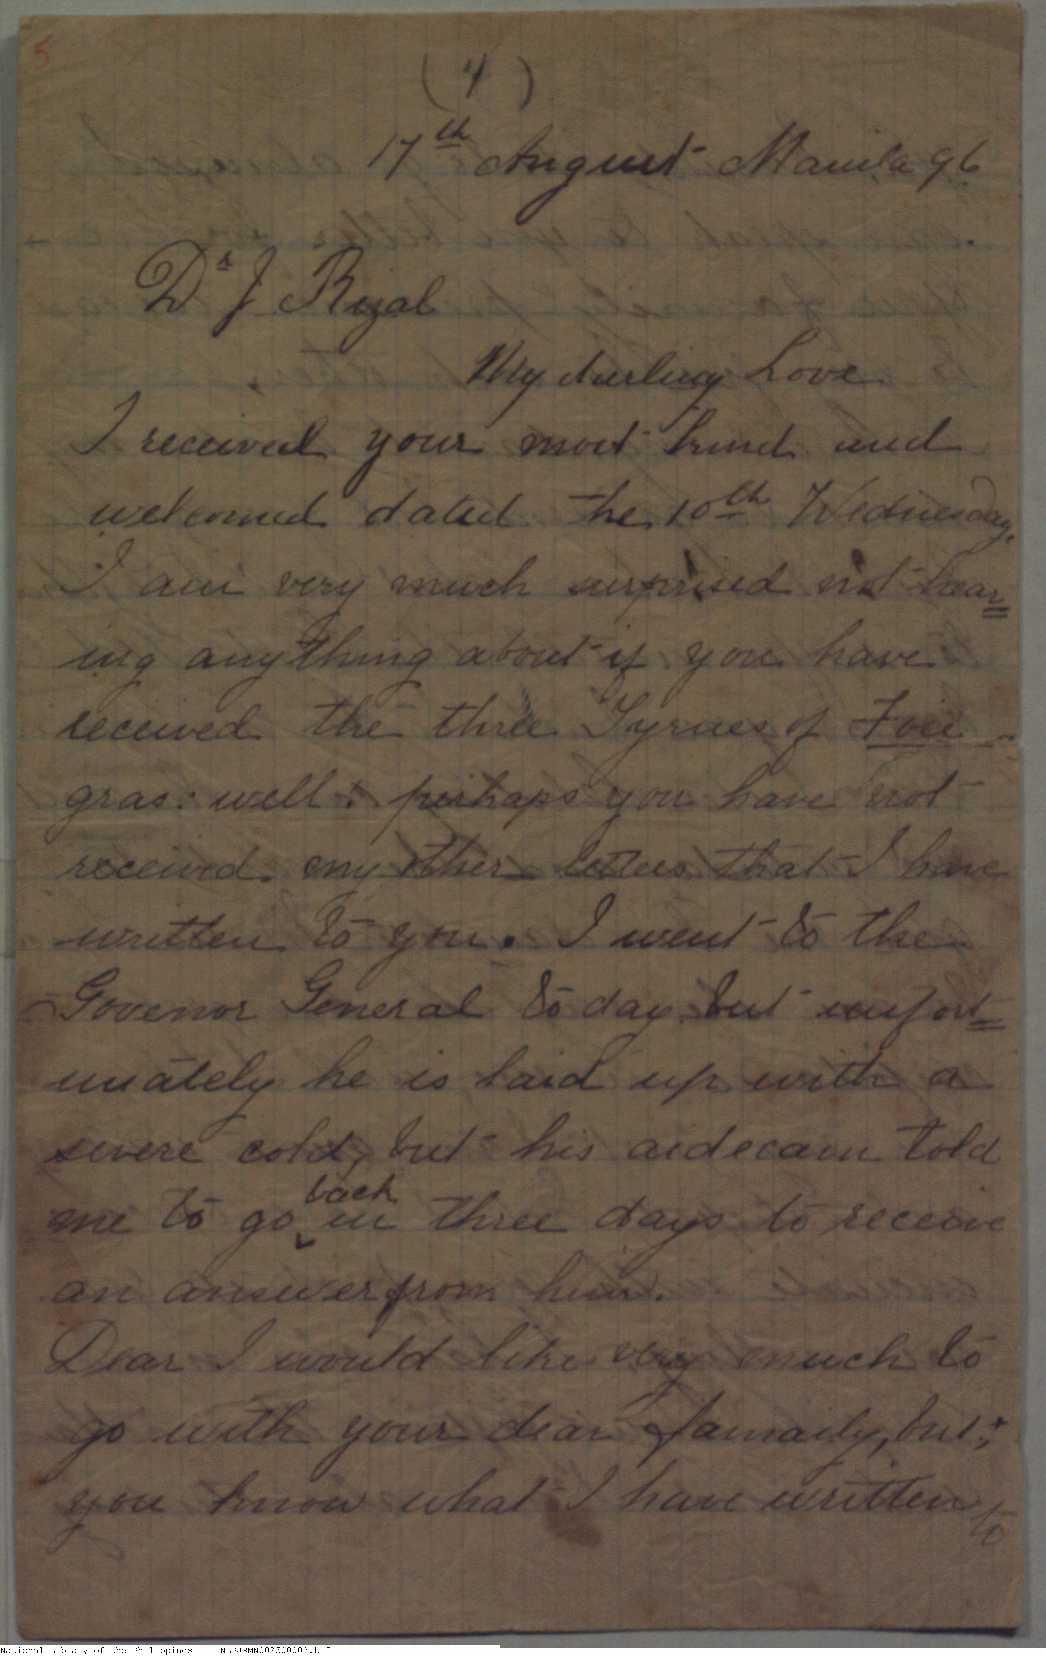 5
(4)
17th August Manila 96
Dr J Rizal
My darling Love
I received your most kind and
welcomed dated the 10th Wednesday,
I am very much surprised not hear=
ing anything about if you have
received the three Tyrnes of Foie
gras: well: perhaps you have not
received. my other letters that I have
written to you. I went to the
Govenor General to day but unfort=
unately he is laid up with a
severe cold, but his aidecam told
me to go back in three days to receive
an answer from him.
Dear I would like very much to
go with your dear famaily, but,
you know what I have written to
National Library of the Philippines